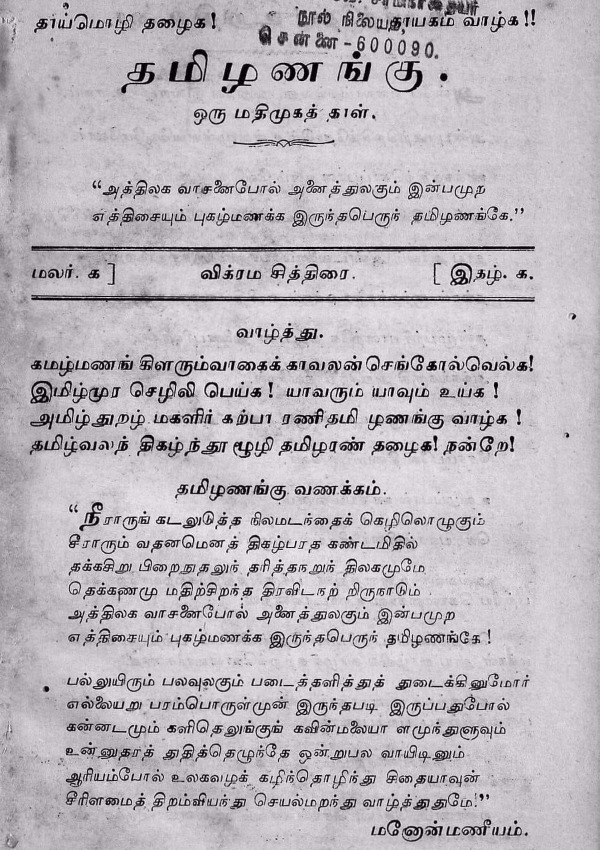 தாய்மொழி தழைக! நூல் நிலையதாயகம் வாழ்க!!
சென்னை-600090.
தமிழணங்கு.
ஒரு மதிமுகத் தாள்.
“அத்திலக வாசனைபோல் அனைத்துலகும் இன்பமுற
எத்திசையும் புகழ்மணக்க இருந்தபெருந் தமிழணங்கே.”
மலர். க ] விக்ரம சித்திரை. [ இதழ். க.
வாழ்த்து.
கமழ்மணங் கிளரும்வாகைக் காவலன்செங்கோல்வெல்க!
இமிழ்முர செழிலி பெய்க! யாவரும் யாவும் உய்க !
அமிழ்துறழ் மகளிர் கற்பா ரணிதமி ழணங்கு வாழ்க !
தமிழ்வலந் திகழ்ந்தூ ழூழி தமிழரண் தழைக! நன்றே!
தமிழணங்கு வணக்கம்.
“நீராருங் கடலுடுத்த நிலமடந்தைக் கெழிலொழுகும்
சீராரும் வதனமெனத் திகழ்பரத கண்டமிதில்
தக்கசிறு பிறைநுதலுந் தரித்தநறுந் திலகமுமே
தெக்கணமு மதிற்சிறந்த திரவிடநற் றிருநாடும்
அத்திலக வாசனைபோல் அனைத்துலகும் இன்பமுற
எத்திசையும் புகழ்மணக்க இருந்தபெருந் தமிழணங்கே !
பல்லுயிரும் பலவுலகும் படைத்தளித்துத் துடைக்கினுமோர்
எல்லையறு பரம்பொருள்முன் இருந்தபடி இருப்பதுபோல்
கன்னடமும் களிதெலுங்குங் கவின்மலையா ளமுந்துளுவும்
உன்னுதரத் துதித்தெழுந்தே ஒன்றுபல வாயிடினும்
ஆரியம்போல் உலகவழக் கழிந்தொழிந்து சிதையாவுன்
சீரிளமைத் திறம்வியந்து செயல்மறந்து வாழ்த்துதுமே!”
மனோன்மணீயம்.